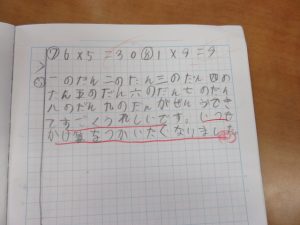 ⑦ 6×5=30 ⑧ 1×9=9
一のだん二のだん三のだん四の
だん五のだん六のだん七のだん
八のだん九のだんがぜんぶでき
てすごくうれしいです。いつも
かけ算をつかいたくなりました